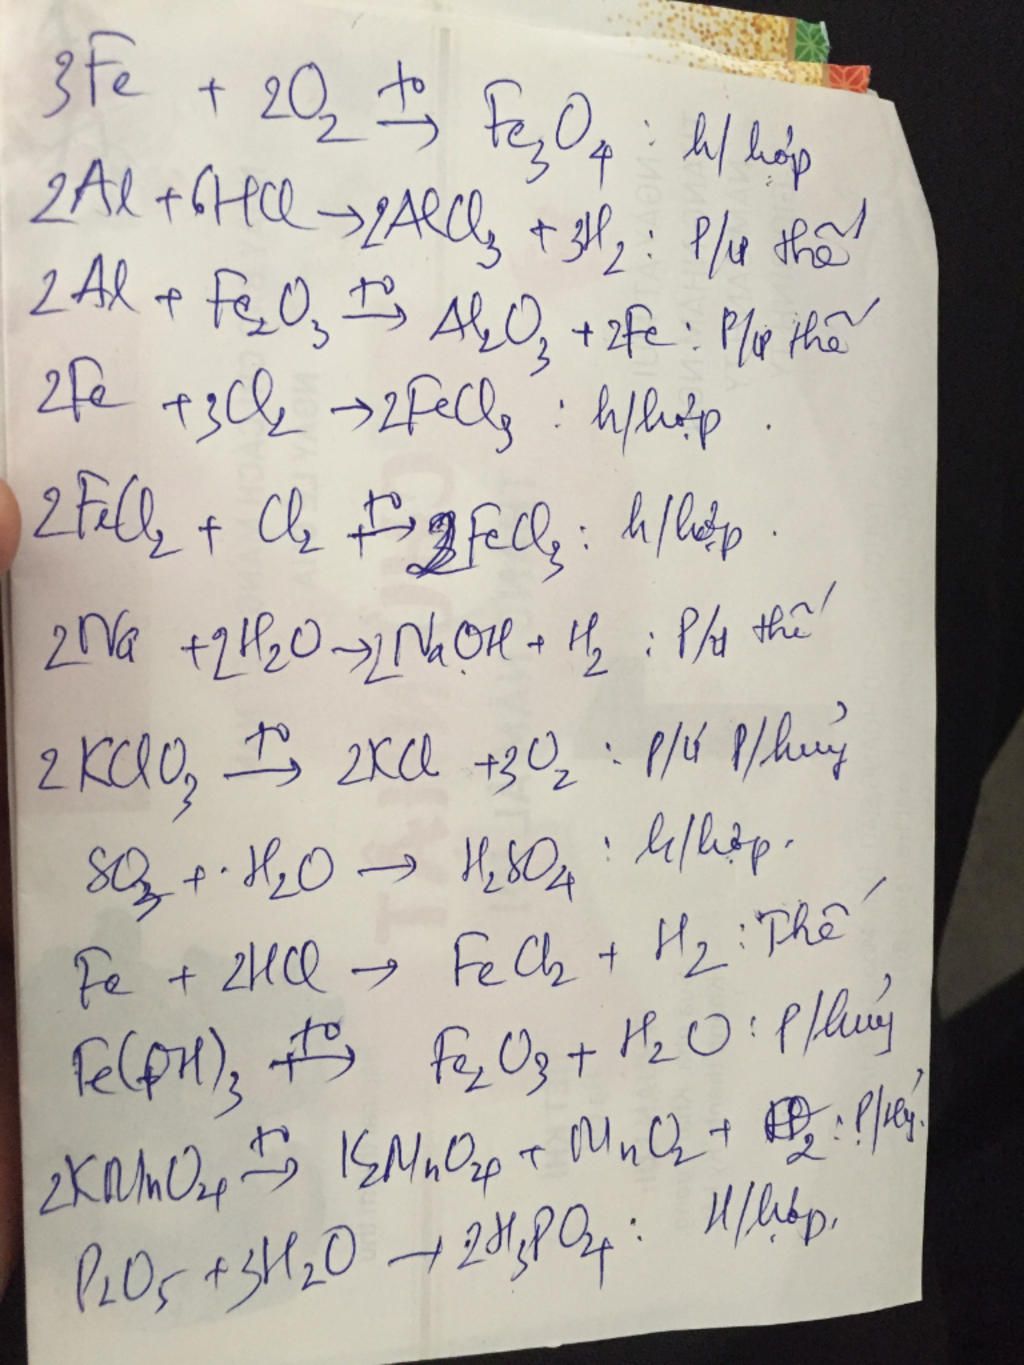 3Fe + 2O₂ →(t⁰) Fe₃O₄ : h/hợp
2Al + 6HCl → 2AlCl₃ + 3H₂ : P/ư thế
2Al + Fe₂O₃ →(t⁰) Al₂O₃ + 2Fe : P/ư thế
2Fe + 3Cl₂ → 2FeCl₃ : h/hợp .
2FeCl₂ + Cl₂ →(t⁰) 2FeCl₃ : h/hợp .
2Na + 2H₂O → 2NaOH + H₂ : P/ư thế
2KClO₃ →(t⁰) 2KCl + 3O₂ : P/ứ P/hủy
SO₃ + H₂O → H₂SO₄ : h/hợp.
Fe + 2HCl → FeCl₂ + H₂ : Thế
Fe(OH)₃ →(t⁰) Fe₂O₃ + H₂O : P/hủy
2KMnO₄ →(t⁰) K₂MnO₄ + MnO₂ + O₂ : P/hủy.
P₂O₅ + 3H₂O → 2H₃PO₄ : H/hợp.